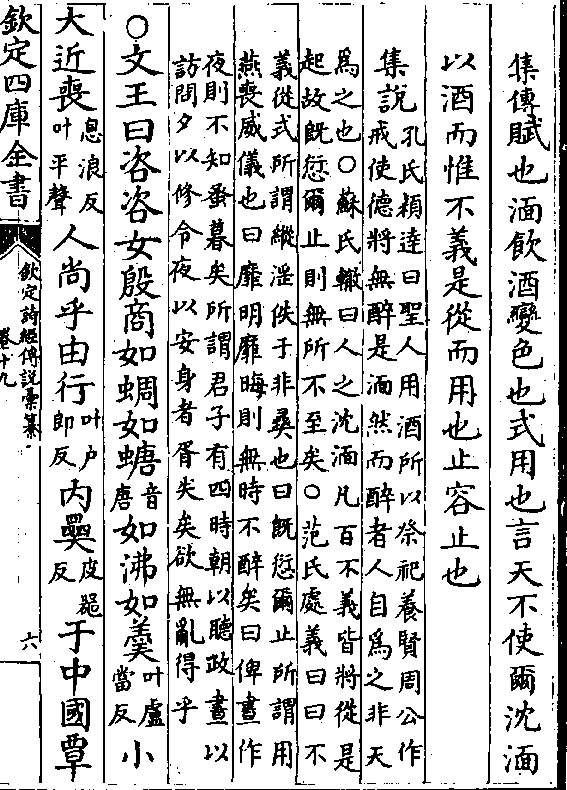 集傳賦也湎飲酒變色也式用也言天不使爾沈湎
以酒而惟不義是從而用也止容止也
集說孔氏穎達曰聖人用酒所以祭祀養賢周公作
戒使德將無醉是湎然而醉者人自爲之非天
爲之也○蘇氏轍曰人之沈湎凡百不義皆將從是
起故既愆爾止則無所不至矣○范氏處義曰曰不
義從式所謂縱淫佚于非彝也曰既愆爾止所謂用
燕喪威儀也曰靡明靡晦則無時不醉矣曰俾晝作
夜則不知蚤暮矣所謂君子有四時朝以聽政晝以
訪問夕以修令夜以安身者胥失矣欲無亂得乎
○文王曰咨咨女殷商如蜩如螗音唐如沸如羹叶盧當反小
大近喪息浪反叶平聲人尚乎由行叶户郎反内奰皮器反于中國覃
欽定四庫全書
欽定詩經傳説彙纂
卷十九
六